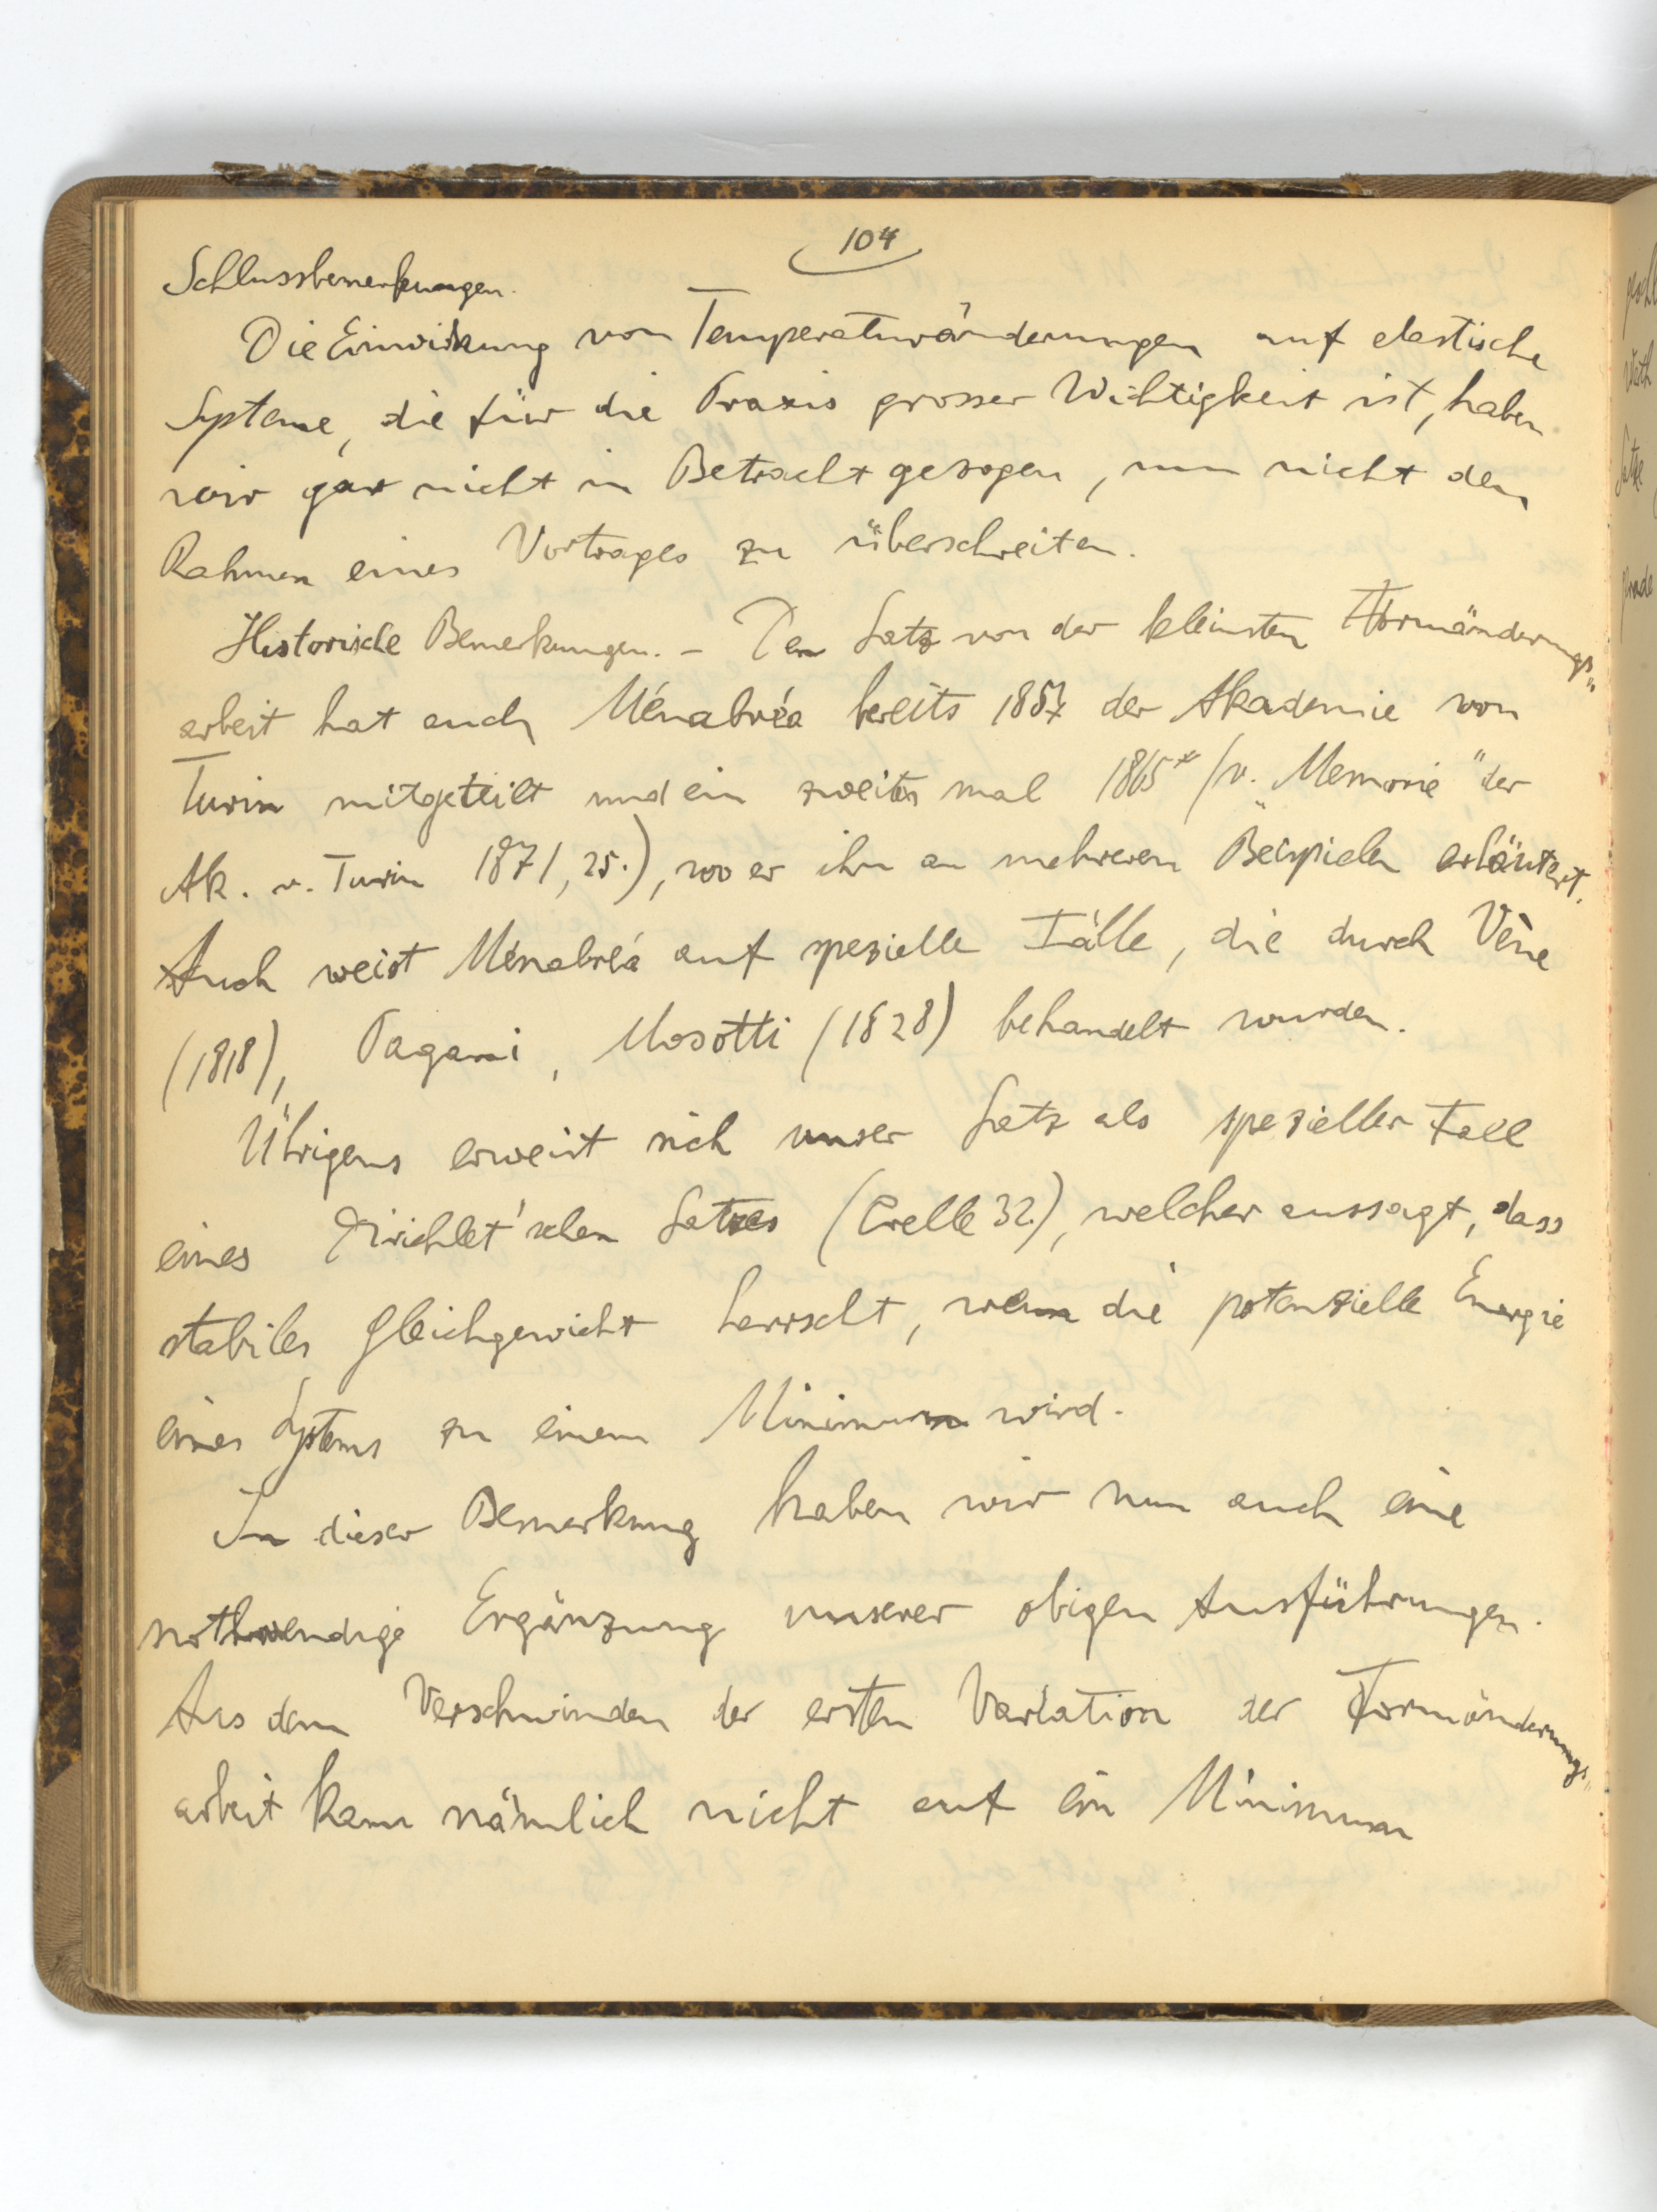 104
Schlussbemerkungen.
Die Einwirkung von Temperaturänderungen auf elastische
Systeme, die für die Praxis grosser Wichtigkeit ist, haben
wir gar nicht in Betracht gezogen, um nicht den
Rahmen eines Vortrages zu überschreiten.
Historische Bemerkungen. – Den Satz von der kleinsten Formänderungs„
arbeit hat auch Ménabréa bereits 1857 der Akademie von
Turin mitgeteilt und ein zweites mal 1865* (v. „Memorie" der
Ak. v. Turin 1871, 25.), wo er ihn an mehreren Beispielen erläutert.
Auch weist Ménabréa auf spezielle Fälle, die durch Vène
(1818), Pagani, Mosotti (1828) behandelt wurden.
Übrigens erweist sich unser Satz als spezieller Fall
eines Dirichlet'schen Satzes (Crelle 32.), welcher aussagt, dass
stabiles Gleichgewicht herrscht, wenn die potenzielle Energie
eines Systems zu einem Minimum wird.
In dieser Bemerkung haben wir nun auch eine
nothwendige Ergänzung unserer obigen Ausführungen.
Aus dem Verschwinden der ersten Variation der Formänderungs„
arbeit kann nämlich nicht auf ein Minimum
Sätze
gerade